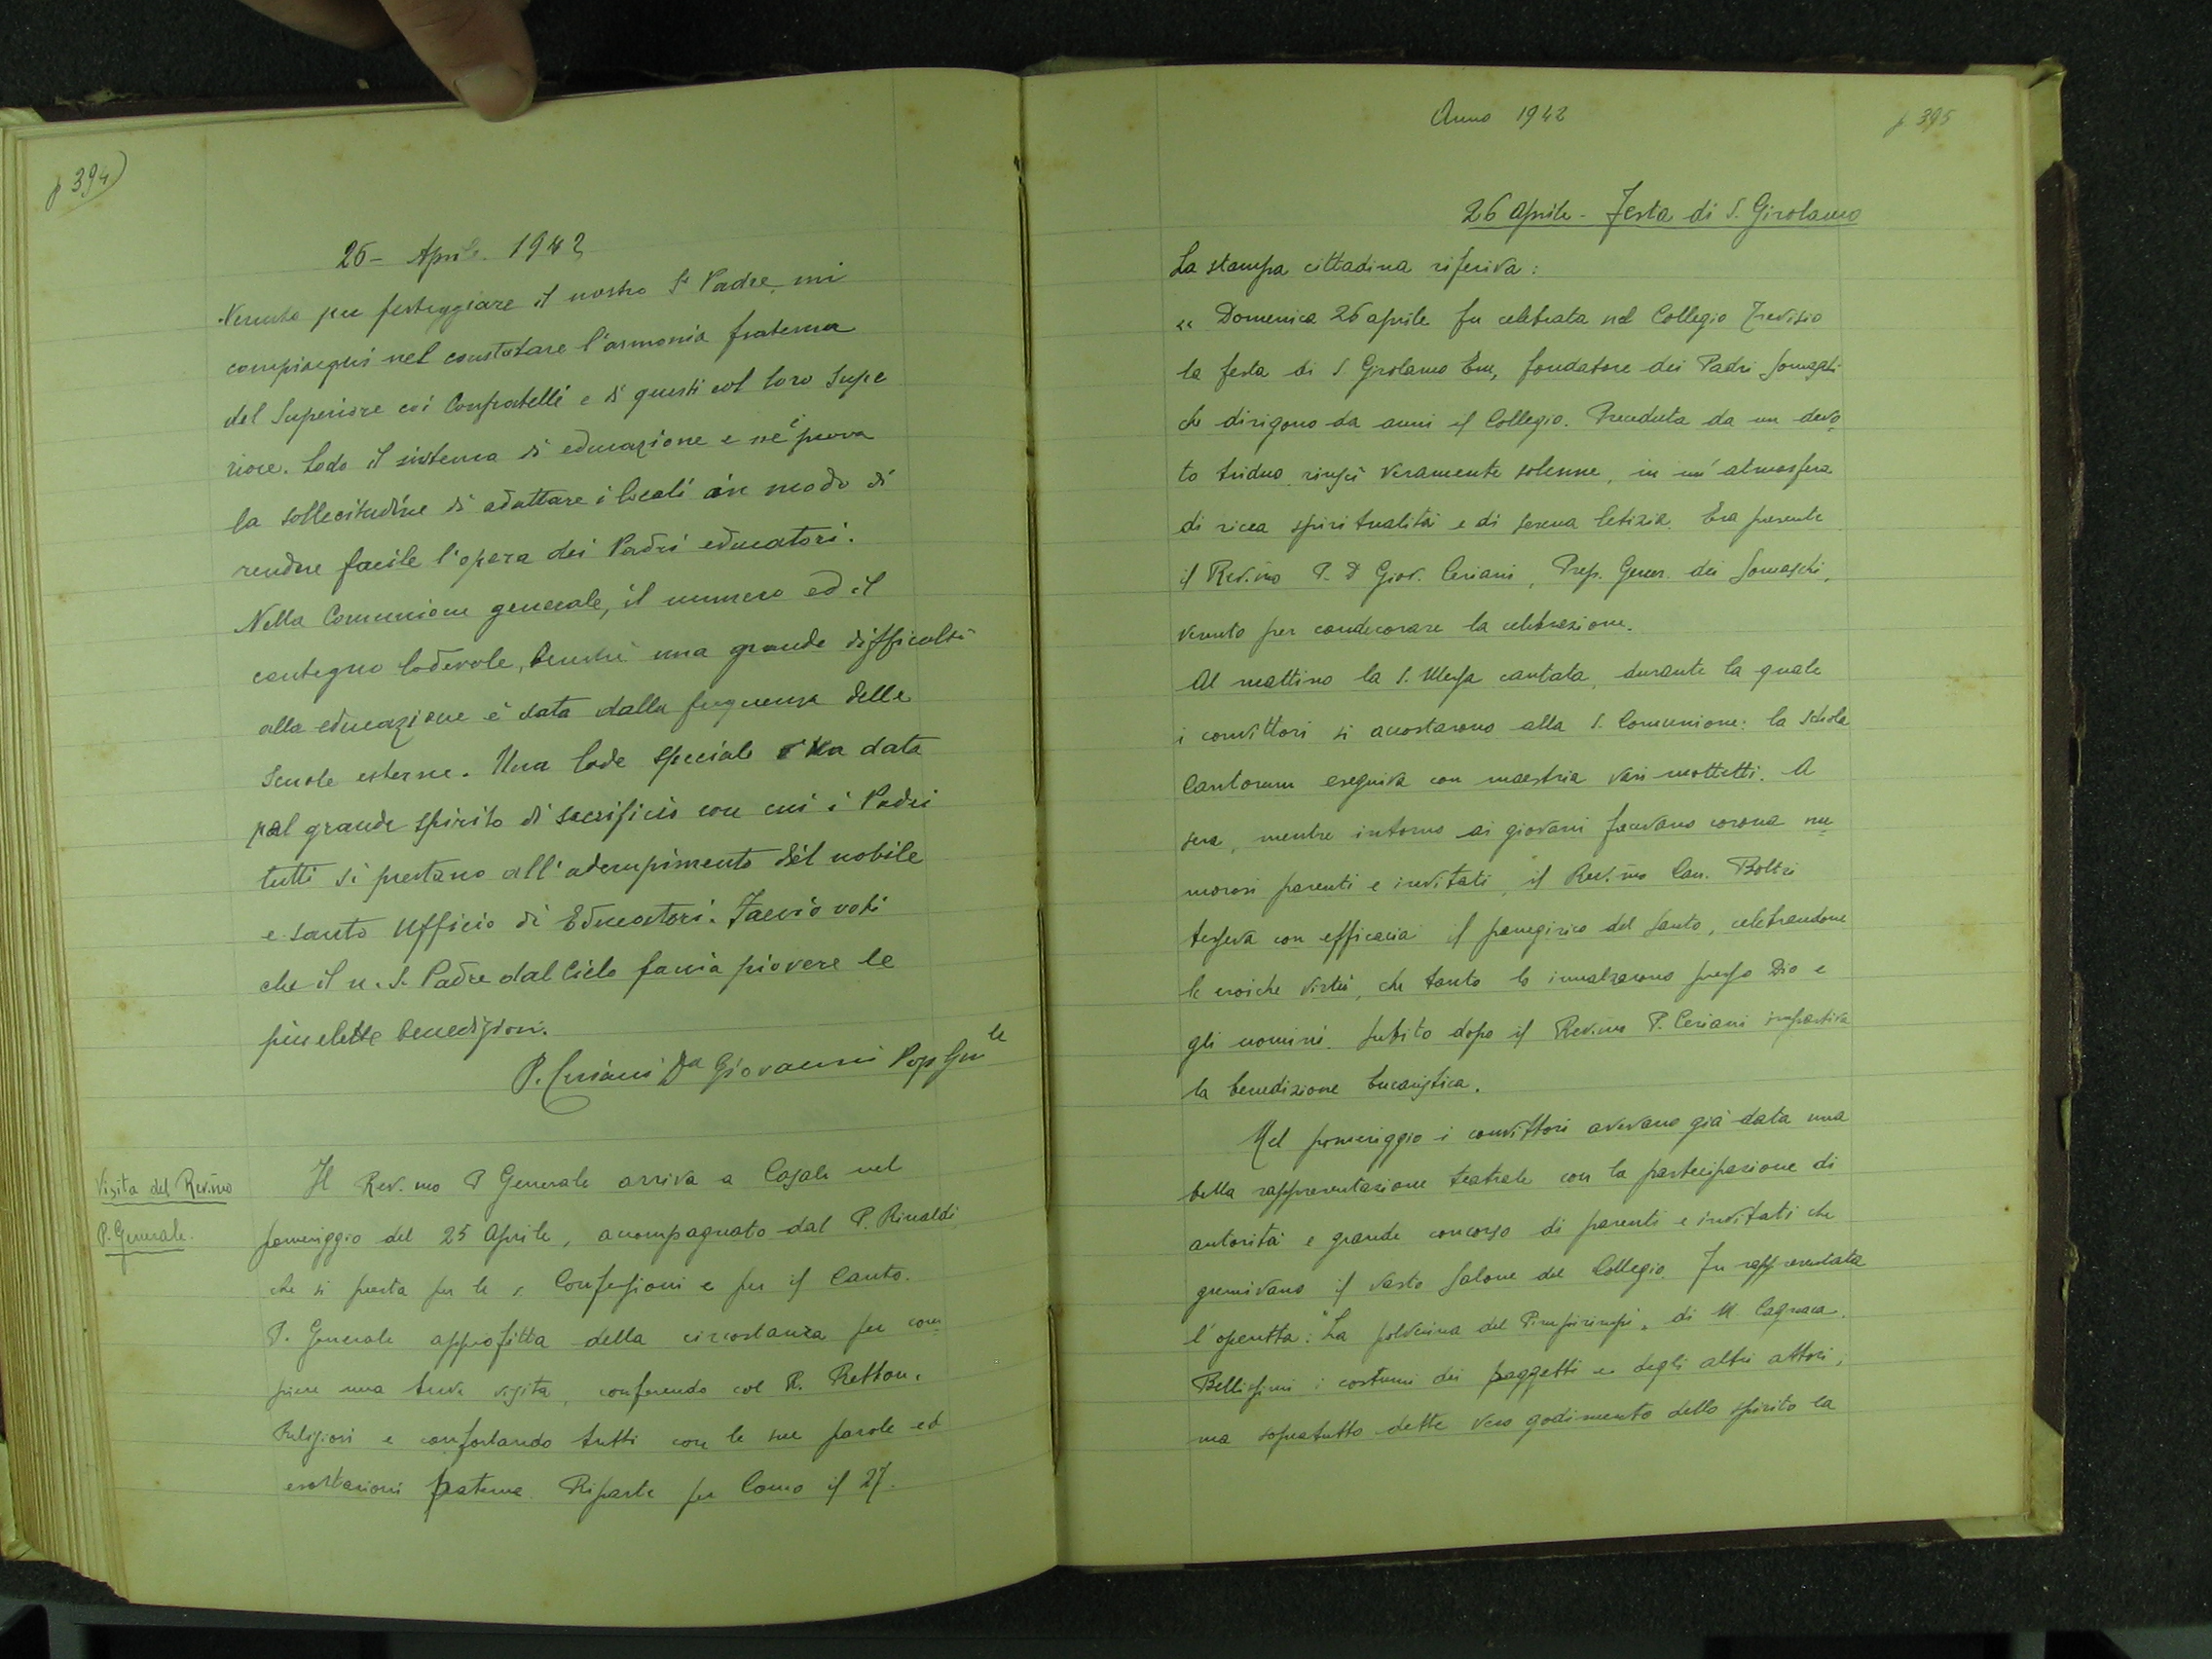 p 394)
26 - Aprile 1942
Venuto per festeggiare il nostro S. Padre, mi
compiacqui nel constatare l'armonia fraterna
del Superiore coi Confratelli e di questi col loro Supe
riore. Lodo il sistema di educazione e ne è prova
la sollecitudine di adattare i locali in modo di
rendere facile l'opera dei Padri educatori.
Nella Comunione generale, il numero ed il
contegno lodevole, benchè una grande difficoltà
alla educazione è data dalla frequenza delle
Scuole esterne. Una lode speciale va data
pel grande spirito di sacrificio con cui i Padri
tutti si prestano all'adempimento del nobile
e santo Ufficio di Educatori. Faccio voti
che il n. S. Padre dal Cielo faccia piovere le
più elette benedizioni.
P. Ceriani D. Giovanni Prep Gen.le
Visita del Rev.mo
P. Generale.
Il Rev.mo P Generale arriva a Casale nel
pomeriggio del 25 Aprile, accompagnato dal P. Rinaldi
che si presta per le s. Confessioni e per il Canto.
P. Generale approfitta della circostanza per com
piere una breve visita, conferendo col P. Rettore,
Religiosi e confortando tutti con le sue parole ed
esortazioni paterne. Riparte per Como il 27.
Anno 1942
p. 395
26 Aprile - Festa di S. Girolamo
La stampa cittadina riferiva:
« Domenica 26 aprile fu celebrata nel Collegio Trevisio
la festa di S. Girolamo Em, fondatore dei Padri Somaschi
che dirigono da anni il Collegio. Preceduta da un devo
to triduo, riuscì veramente solenne, in un'atmosfera
di ricca spiritualità e di serena letizia. Era presente
il Rev.mo P. D Giov. Ceriani, Prep. Gener. dei Somaschi,
venuto per condecorare la celebrazione.
Al mattino la S. Messa cantata, durante la quale
i convittori si accostarono alla S. Comunione: la Schola
Cantorum eseguiva con maestria vari mottetti. A
sera, mentre intorno ai giovani facevano corona nu
merosi parenti e invitati, il Rev.mo Can. Boltri
tesseva con efficacia il panegirico del Santo, celebrandone
le eroiche virtù, che tanto lo innalzarono presso Dio e
gli uomini. Subito dopo il Rev.mo P. Ceriani impartiva
la benedizione Eucaristica.
Nel pomeriggio i convittori avevano già data una
bella rappresentazione teatrale con la partecipazione di
autorità e grande concorso di parenti e invitati che
gremivano il vasto Salone del Collegio. Fu rappresentata
l'operetta: "La polverina del Pimpirimpì" di M. Cagnacci.
Bellissimi i costumi dei paggetti e degli altri attori,
ma sopratutto dette vero godimento dello spirito la